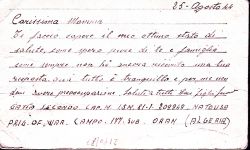 25-Agosto 44
Carissima Mamma
Ti faccio sapere il mio ottimo stato di
salute, come spero pure di te e famiglia
come sempre non ho ancora ricevuto una tua
risposta, qui tutto è tranquillo e per me non
devi avere preoccupazione. Saluti a tutti tuo figlio
P.M. 81-I
PRIG. OF. WAR. CAMPO. 131. SUB. ORAN (ALGERIA)